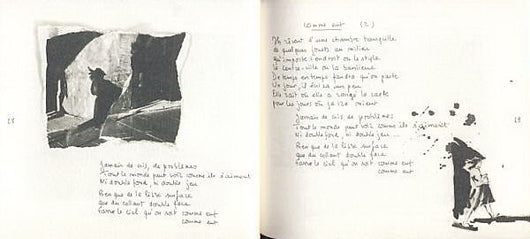 28
Jamais de cris, de problèmes
Tout le monde peut voir comme ils s'aiment
Ni double fond, ni double jeu
Rien que de la libre surface
que du collant double face
Parce le ciel qu'on soit comme eux
comme eux.
comme eux (2)
Ils rêvent d'une chambre tranquille
de quelques jouets au milieu
Qu'importe l'endroit ou le style
le centre-ville ou la banlieue
De temps en temps faudra qu'on parte
Un jour, il fera un peu
Elle sait où elle a rangé la carte
pour les jours où ça ira mieux
Jamais de cris de problèmes
Tout le monde peut voir comme ils s'aiment
Ni double fond, ni double jeu ...
Rien que de la libre surface
que du collant double face
Fasse le ciel qu'on soit comme eux
comme eux